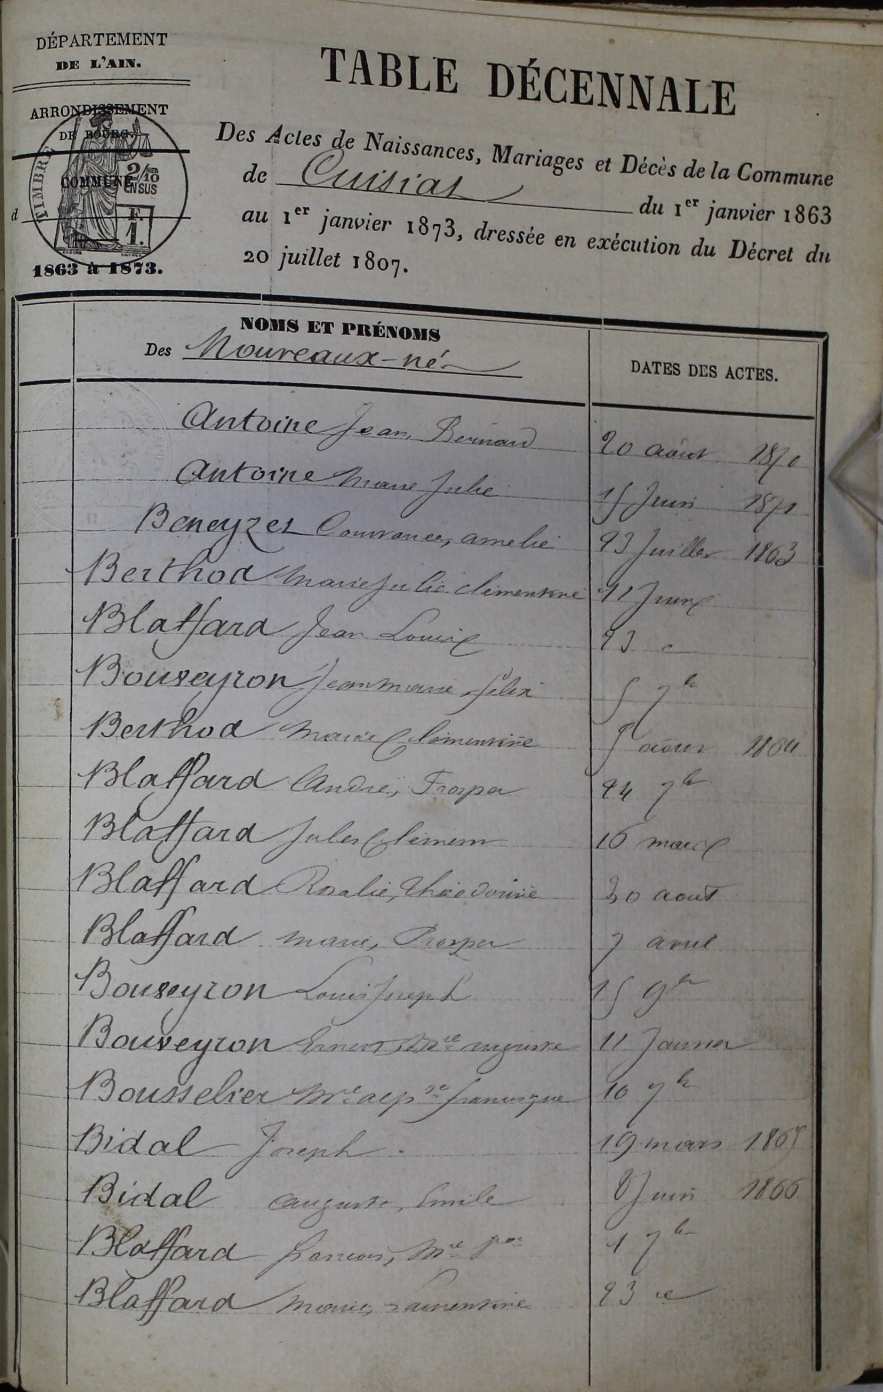 DÉPARTEMENT
DE L'AIN.
ARRONDISSEMENT
DE BOURG.
COMMUNE
d
TIMBRE
2/10
EN SUS
F.
1.
1863 à 1873.
TABLE DÉCENNALE
Des Actes de Naissances, Mariages et Décès de la Commune
de Cuisiat du 1er janvier 1863
au 1er janvier 1873, dressée en exécution du Décret du
20 juillet 1807.
NOMS ET PRÉNOMS
Des Nouveaux-né
DATES DES ACTES.
Antoine Jean, Bernard 20 août 1870
Antoine Marie Julie 15 Juin 1871
Beneyzet Constance, amelie 23 Juillet 1863
Berthod Marie Julie Clementine 21 Juin
Blaffard Jean Louis 23
Bouveyron Jean Marie, felix 5 7bre
Berthod Marie Clementine 5 aout 1864
Blaffard André, Prosper 24 7bre
Blaffard Jules Clement 16 mars
Blaffard Rosalie, Théodorine 30 aout
Blaffard marie, Prosper 7 avril
Bouveyron Louis Joseph 15 9bre
Bouveyron Ernest, auguste 11 Janvier
Bousselier françoise 10 7bre
Bidal Joseph 19 mars 1865
Bidal auguste, Emile 8 Juin 1866
Blaffard francois, 1 7bre
Blaffard marie, Laurentine 23